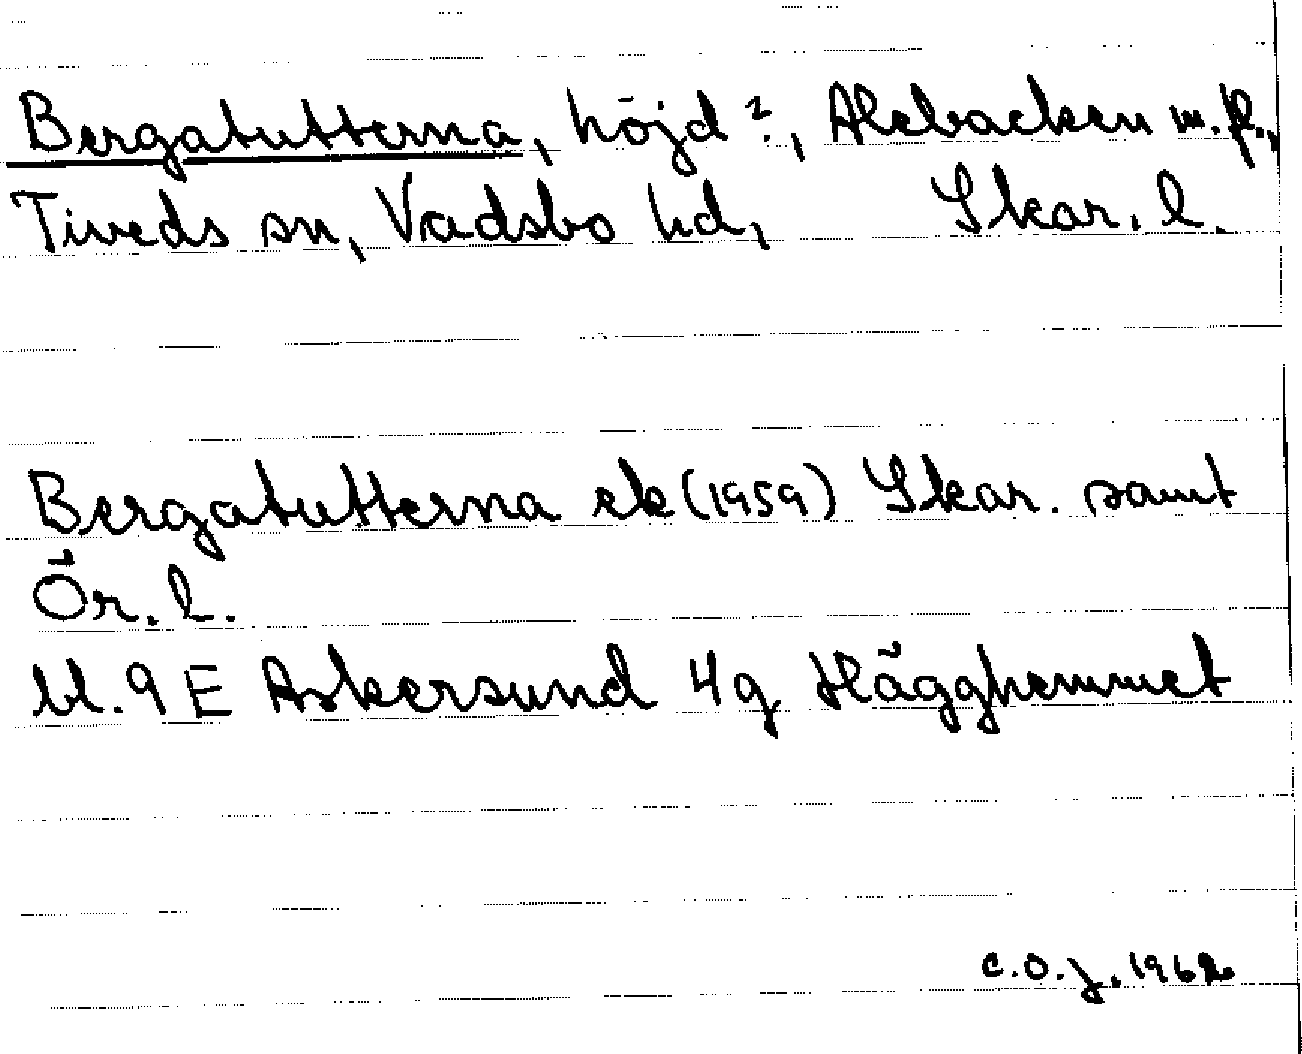 Bergatutterna, höjd ?, Alebacken m.fl.,
Tiveds sn, Vadsbo hd, Skar. l.
Bergatutterna ek (1959) Skar. samt
Ör. l.
bl. 9 E Askersund 4g Hägghemmet
C.O.J. 1962